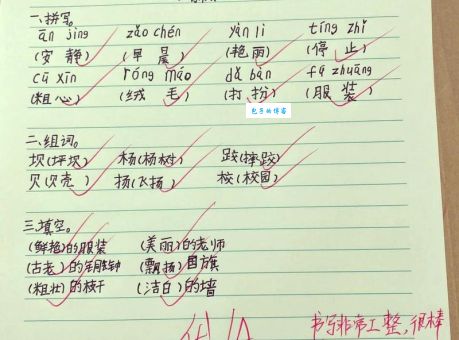 一、拼写。
ān jìng zǎo chén yàn lì tíng zhǐ
(安静) (早晨) (艳丽) (停止)
cū xīn róng máo dǎ bàn fú zhuāng
(粗心) (绒毛) (打扮) (服装)
包子的博客
二、组词。
坝(坪坝) 杨(杨树) 跤(摔跤)
贝(贝壳) 扬(飞扬) 校(校园)
三、填空。
(鲜艳)的服装 (美丽)的老师
(古老)的铜钟 (飘扬)国旗
(粗壮)的枝干 (洁白)的墙
书写非常工整,很棒